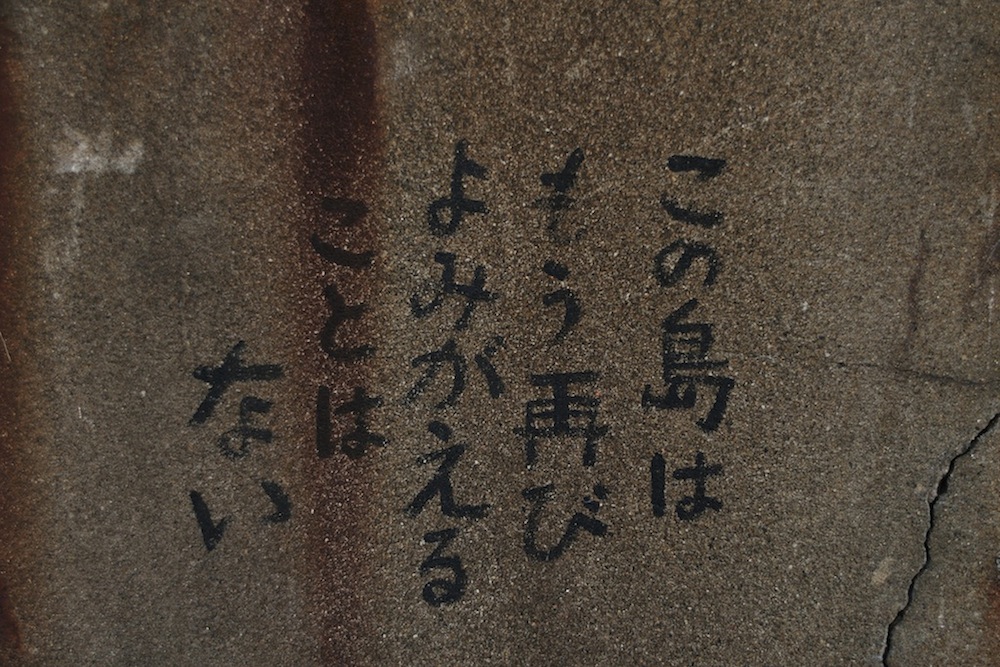 この島は
もう再び
よみがえる
ことは
ない